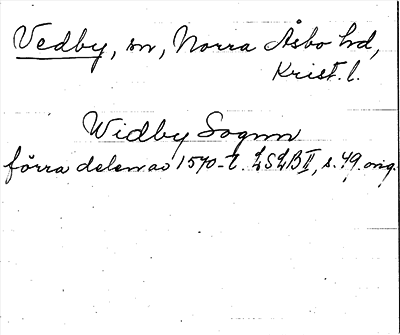 Vedby, sn, Norra Åsbo hd,
Krist. l.
Widby Sognn
förra delen av 1570-t. LSLB II, s. 49. orig.